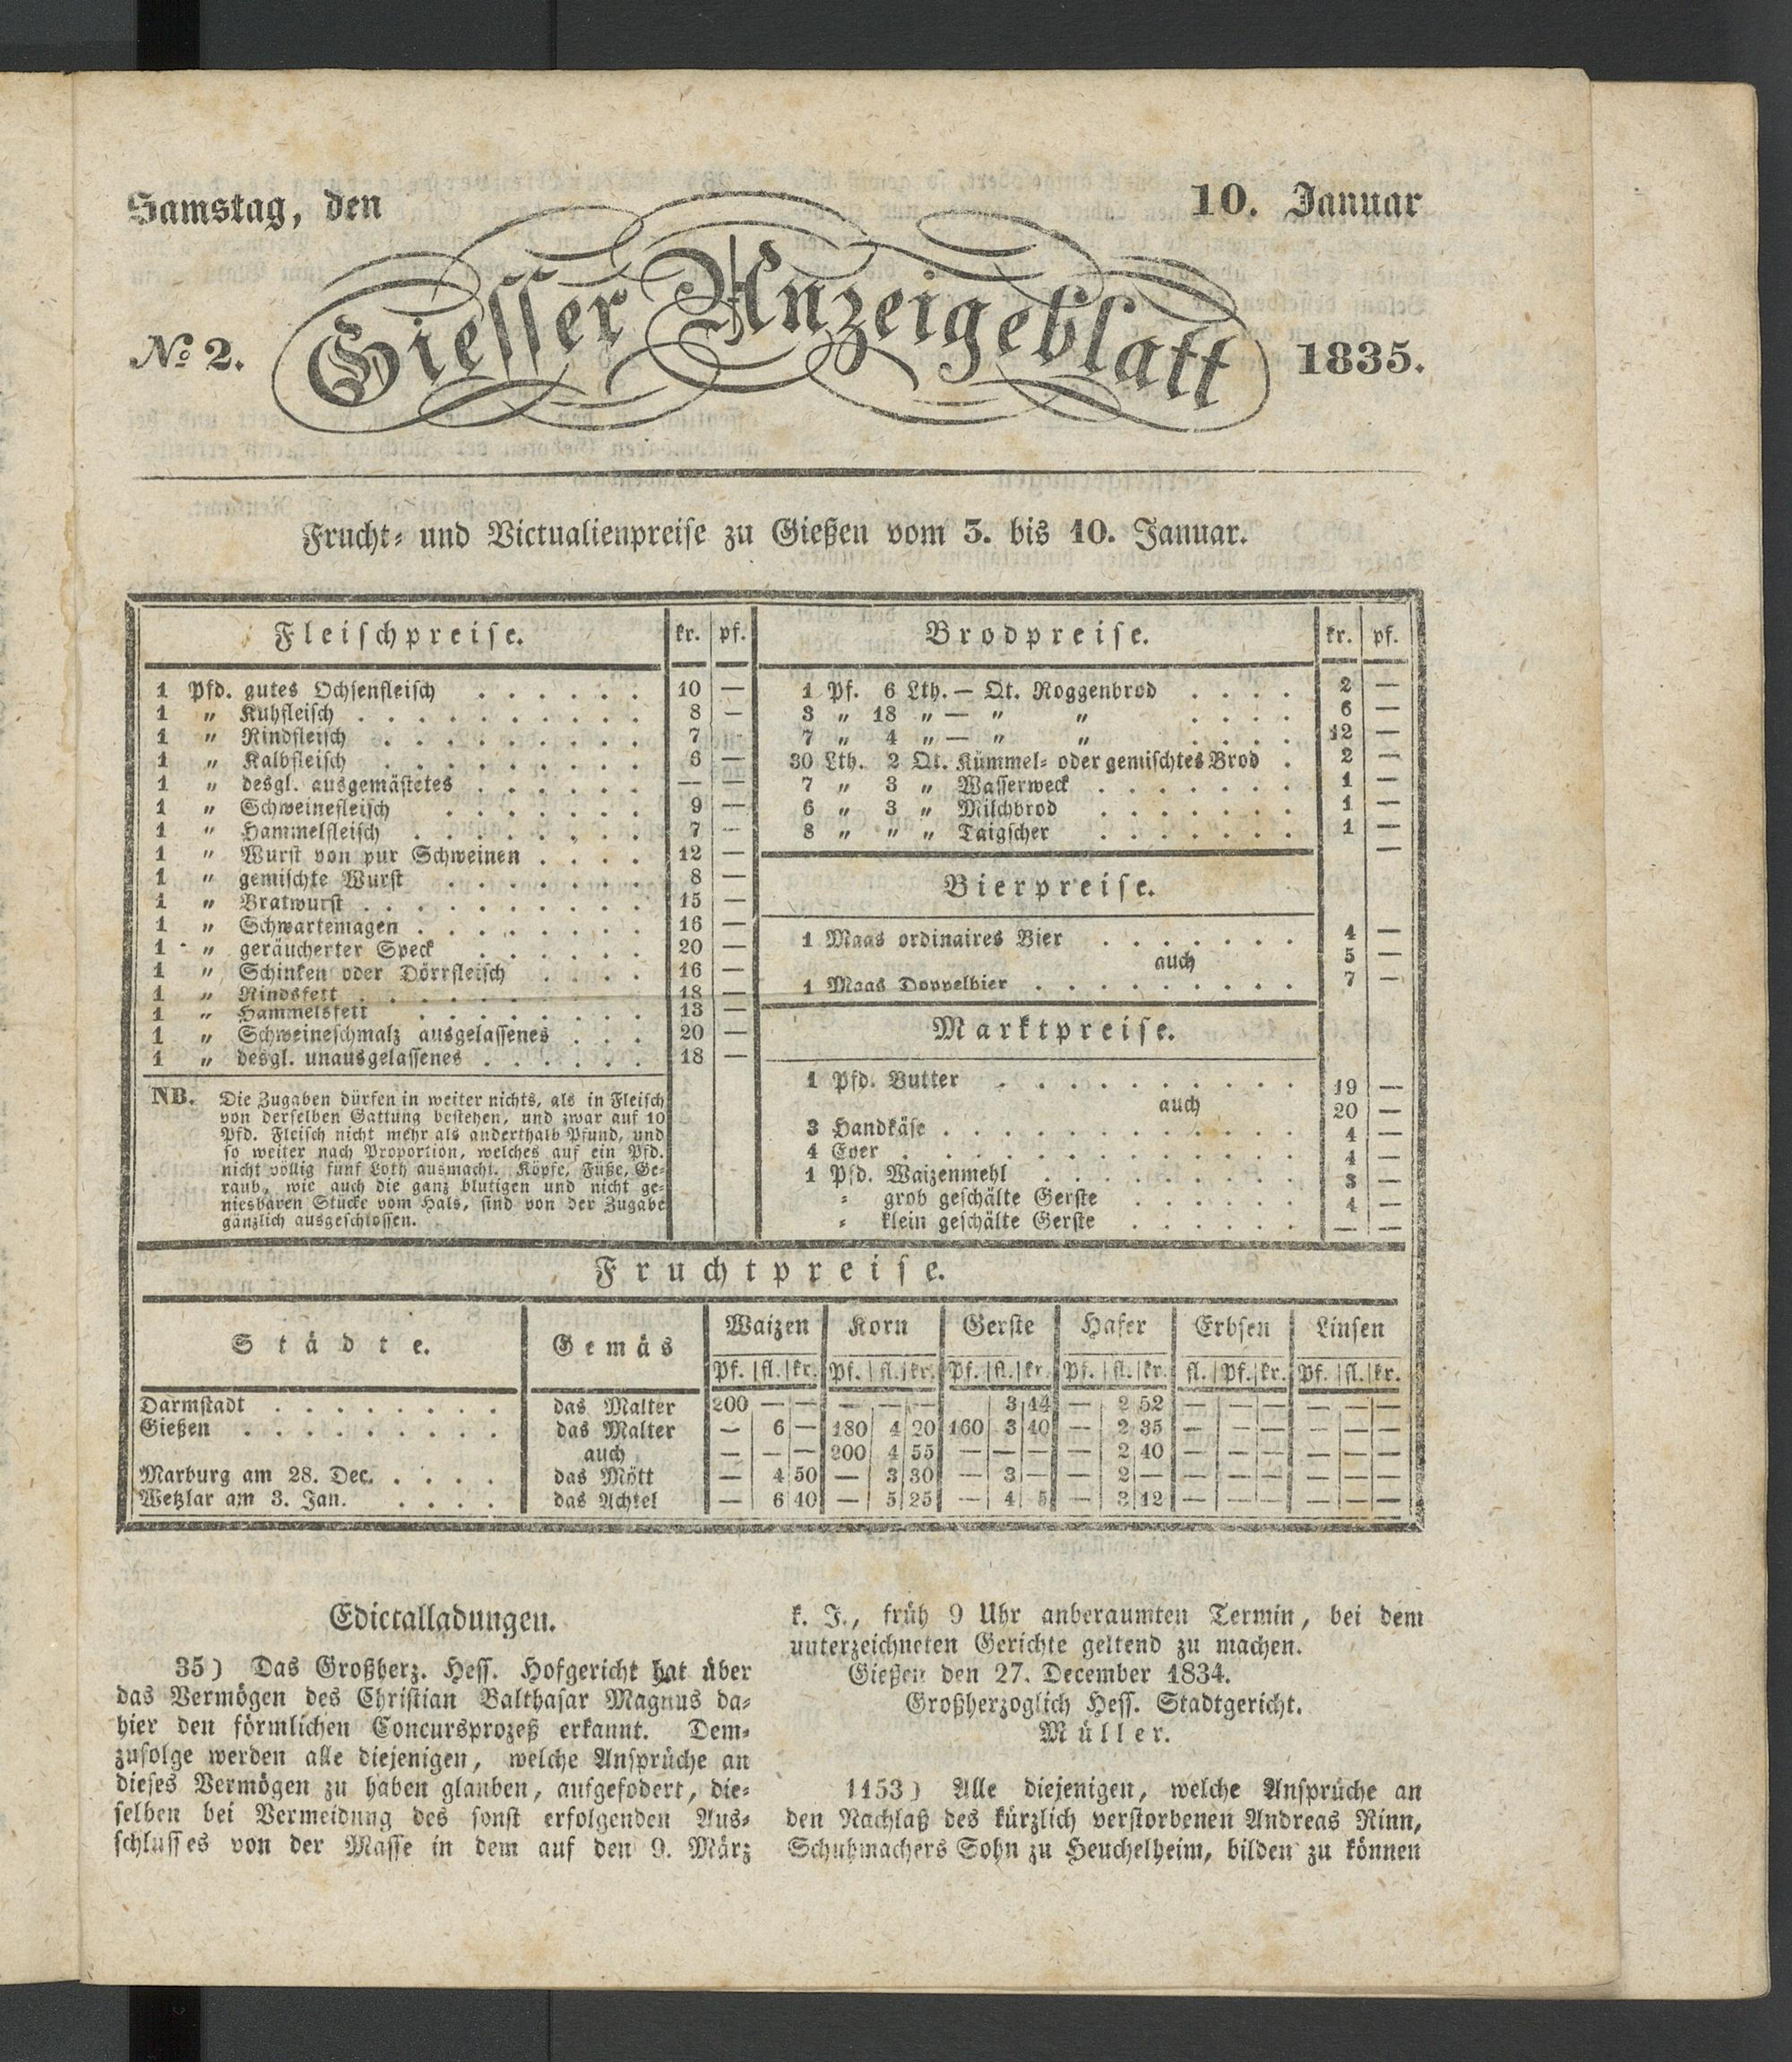 Samstag, den
10. Januar
No. 2.
Giesser Anzeigeblatt
1835.
Frucht- und Victualienpreise zu Gießen vom 3. bis 10. Januar.
Fleischpreise. kr. pf.
1 Pfd. gutes Ochsenfleisch . . . . . . 10 —
1 „ Kuhfleisch . . . . . . . . . . 8 —
1 „ Rindfleisch . . . . . . . . . 7
1 „ Kalbfleisch . . . . . . . . . 6 —
1 „ desgl. ausgemästetes . . . . . . — —
1 „ Schweinefleisch . . . . . . . 9 —
1 „ Hammelfleisch . . . . . . . . 7 —
1 „ Wurst von pur Schweinen . . . . 12 —
1 „ gemischte Wurst . . . . . . . 8 —
1 „ Bratwurst . . . . . . . . . . 15 —
1 „ Schwartemagen . . . . . . . . 16 —
1 „ geräucherter Speck . . . . . . 20 —
1 „ Schinken oder Dörrfleisch . . . . 16 —
1 „ Rindsfett . . . . . . . . . . 18 —
1 „ Hammelsfett . . . . . . . . 13 —
1 „ Schweineschmalz ausgelassenes . . . 20 —
1 „ desgl. unausgelassenes . . . . . . 18 —
NB. Die Zugaben dürfen in weiter nichts, als in Fleisch
von derselben Gattung bestehen, und zwar auf 10
Pfd. Fleisch nicht mehr als anderthalb Pfund, und
so weiter nach Proportion, welches auf ein Pfd.
nicht völlig fünf Loth ausmacht. Köpfe, Füße, Ge-
raub, wie auch die ganz blutigen und nicht ge-
niesbaren Stücke vom Hals, sind von der Zugabe
gänzlich ausgeschlossen.
Brodpreise. kr. pf.
1 Pf. 6 Lth. — Qt. Roggenbrod . . . . 2 —
3 „ 18 „ — „ „ . . . . 6 —
7 „ 4 „ — „ „ . . . . 12 —
30 Lth. 2 Qt. Kümmel- oder gemischtes Brod . 2 —
7 „ 3 „ Wasserweck . . . . . . . 1 —
6 „ 3 „ Milchbrod . . . . . . . 1 —
8 „ „ „ Taigscher . . . . . . . 1 —
—
Bierpreise.
1 Maas ordinaires Bier . . . . . . . 4 —
auch 5 —
1 Maas Doppelbier . . . . . . . . . 7 —
Marktpreise.
1 Pfd. Butter . . . . . . . . . . 19 —
auch 20 —
3 Handkäse . . . . . . . . . . . . 4 —
4 Eyer . . . . . . . . . . . . . 4 —
1 Pfd. Waizenmehl . . . . . . . . . 3 —
„ grob geschälte Gerste . . . . . . 4 —
„ klein geschälte Gerste . . . . . . — —
Fruchtpreise.
Städte. Gemäs Waizen Korn Gerste Hafer Erbsen Linsen
Pf. fl. kr. Pf. fl. kr. Pf. fl. kr. Pf. fl. kr. fl. Pf. kr. Pf. fl. kr.
Darmstadt . . . . . . . . das Malter 200 — — — — — 3 14 — 2 52 — — — — — —
Gießen . . . . . . . . . das Malter — 6 — 180 4 20 160 3 40 — 2 35 — — — — — —
auch — — — 200 4 55 — — — — 2 40 — — — — — —
Marburg am 28. Dec. . . . . das Mött — 4 50 — 3 30 — 3 — — 2 — — — — — — —
Wetzlar am 3. Jan. . . . . das Achtel — 6 40 — 5 25 — 4 5 — 3 12 — — — — — —
Edictalladungen.
35) Das Großherz. Hess. Hofgericht hat über
das Vermögen des Christian Balthasar Magnus da-
hier den förmlichen Concursprozeß erkannt. Dem-
zufolge werden alle diejenigen, welche Ansprüche an
dieses Vermögen zu haben glauben, aufgefodert, die-
selben bei Vermeidung des sonst erfolgenden Aus-
schlusses von der Masse in dem auf den 9. März
k. J., früh 9 Uhr anberaumten Termin, bei dem
unterzeichneten Gerichte geltend zu machen.
Gießen den 27. December 1834.
Großherzoglich Hess. Stadtgericht.
Müller.
1153) Alle diejenigen, welche Ansprüche an
den Nachlaß des kürzlich verstorbenen Andreas Rinn,
Schuhmachers Sohn zu Heuchelheim, bilden zu können